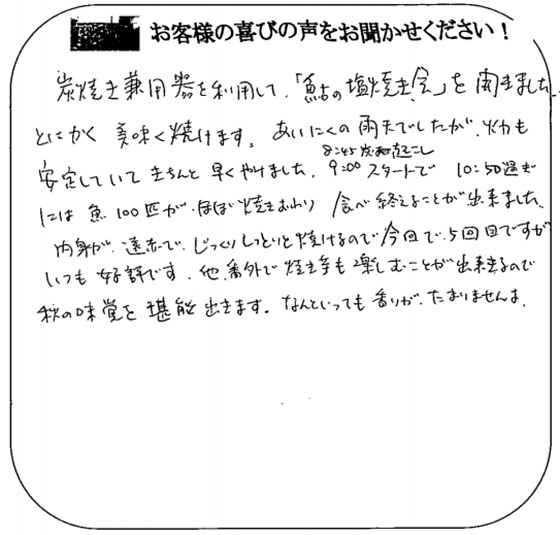 お客様の喜びの声をお聞かせください！
炭焼き兼用器を利用して、「鮎の塩焼き会」を開きました。
とにかく 美味く焼けます。あいにくの雨天でしたが、火力も
8:45 炭起こし
安定していて きちんと 早くやけました。9:00 スタートで 10:50過ぎ
には 魚100匹が ほぼ焼きおわり 食べ終えることが出来ました。
内身が、遠赤で、じっくりしっとりと焼けるので 今回で、5回目ですが
いつも 好評です。他、番外で 焼き芋も 楽しむことが出来るので
秋の味覚を 堪能 出きます。なんといっても 香りが、たまりませんよ。